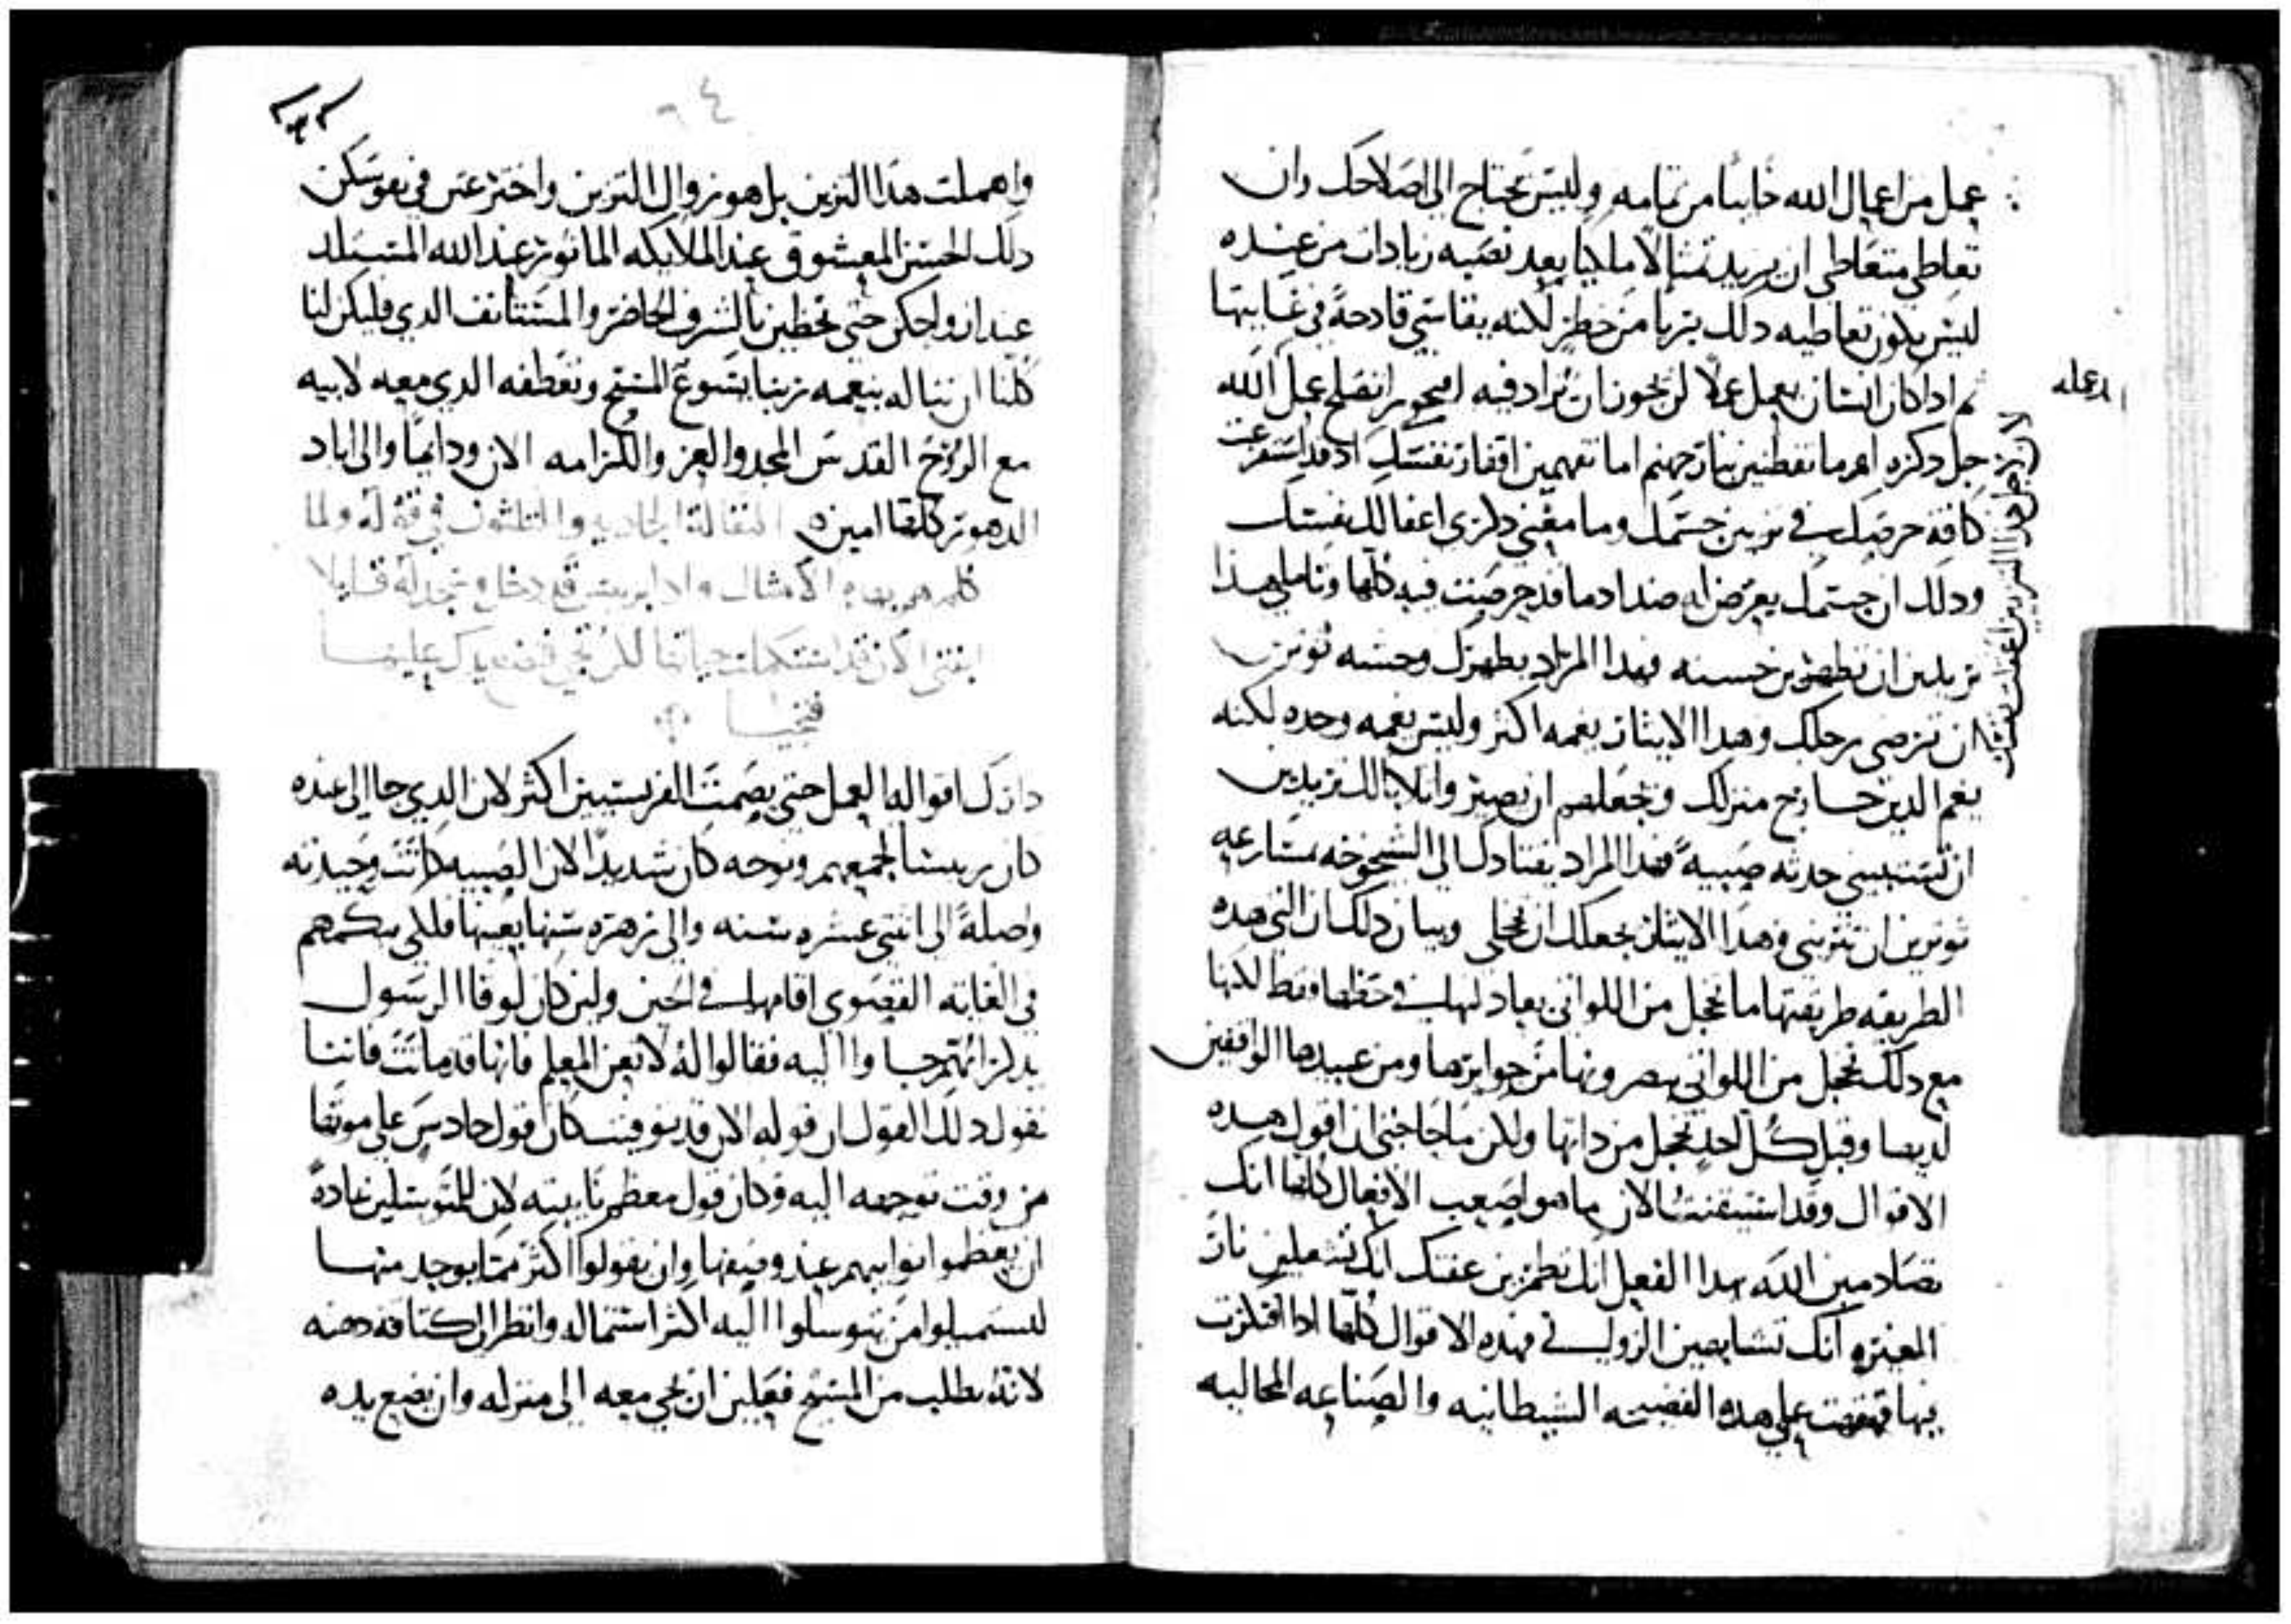 عمل من اعمال الله خايبًا من تمامه وليس يحتاج الى اصلاحك وان
تعاطى متعاطى ان يزيد تمثالًا ملكيا بعد نصبه زيادات من عنده
ليس يكون تعاطيه ذلك بريا من خطر لكنه يقاسي قادحة في غايتها
ثم اذا كان انسان يعمل عملا لن يجوز ان يزاد فيه افيجوز ان تصلح عمل الله
جل ذكره اوما تفطنين بنار جهنم اما تفهمين اقفار نفسك اذ قد استفرغت
كافة حرصك في تزيين جسمك وما معنى ذكري اغفالك نفسك
وذلك ان جسمك يعرض له ضد ما قد حرصت فيه كلها وتاملي هذا
تريدين ان تظهرين حسنه فهذا المراد يظهرك وحشه توثرين
ان ترضي رجلك وهذا الايثار يغمه اكثر وليس يغمه وحده لكنه
يغم الذين خارج منزلك ويجعلهم ان يصير وا ثلابا لك تريدين
ان تستبيني حدثه صبيةً فهذا المراد يقتادك الى الشيخوخه مسارعه
توثرين ان تتزيني وهذا الايثار يجعلك ان تخجلي وبيان ذلك ان التي هذه
الطريقه طريقتها ما تخجل من اللواتي يعادلنها في حظها فقط لكنها
مع ذلك تخجل من اللواتي يبصرونها من جوارها ومن عبيدها الواقفين
لديها وقبل كل احد تخجل من ذاتها ولكن ما حاجتي ان اقول هذه
الاقوال وقد استيقنت الان ما هو اصعب الافعال كلها انك
تصادمين الله بهذا الفعل انك تطمرين عفتك انك تشعلين نار
الغيره انك تشابهين الزواني فهذه الاقوال كلها اذا افتكرت
بها على هذه الفضيحه الشيطانيه والصناعه المحاليه
لان من اجل هذا التزيين اغفلت نفسك
واهملت هذا التزيين بل هو زوال التزيين واخترعتن في نفوسكن
ذلك الحسن المعشوق عند الملايكه الماثور عند الله المستلذ
عند ازواجكن حتى تحظين بالشرف الحاضر والمستانف الذي فليكن لنا
كلنا ان نناله بنعمه ربنا يسوع المسيح وتعطفه الذي معه لابيه
مع الروح القدس المجد والعز والكرامه الان ودايمًا والى اباد
الدهور كلها امين المقالة الحاديه والثلثون في قوله ولما
كلمهم بهذه الامثال واذا بريس قد دخل وسجد له قايلا
ابنتي الان قد استكملت حياتها لكن تجي فتضع يدك عليها
فتحيا
ادرك اقواله العمل حتى يصمت الفريسيين اكثر لان الذي جا الى عنده
كان ريسا لجمعهم ونوحه كان شديدًا لان الصبيه كانت وحيدته
واصلةً الى اثنتي عشره سنه والى زهره سنها بعينها فلكي يبكمهم
في الغايه القصوي اقامها في الحين ولين كان لوقا الرسول
يذكر انهم جا وا اليه فقالوا له لا تعن المعلم فانها قد ماتت فاننا
نقول ذلك القول ان قوله الان قد توفيت كان قول حادس على موتها
من وقت توجهه اليه وكان قول معظم نايبته لان للمتوسلين عادةً
ان يعظموا نوايبهم عند وصفها وان يقولوا اكثر مما يوجد منها
ليستميلوا من يتوسلوا اليه اكثر استماله وانظر الى كثافه ذهنه
لانه يطلب من المسيح فعلين ان يجي معه الى منزله وان يضع يده